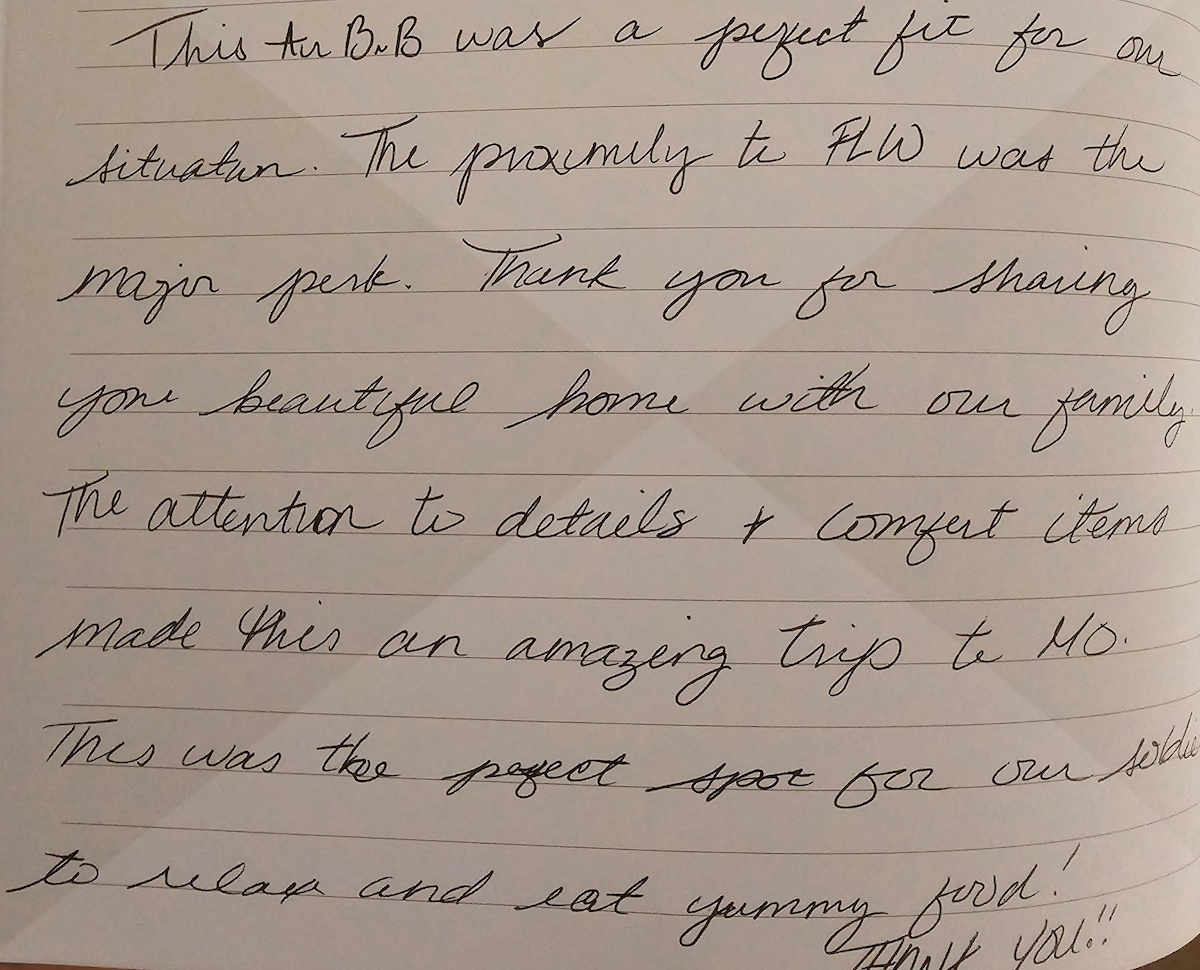 This Air BnB was a perfect fit for our
situation. The proximity to FLW was the
major perk. Thank you for sharing
your beautiful home with our family.
The attention to details + comfort items
made this an amazing trip to MO.
This was the perfect spot for our soldie
to relax and eat yummy food!
THANK YOU!!